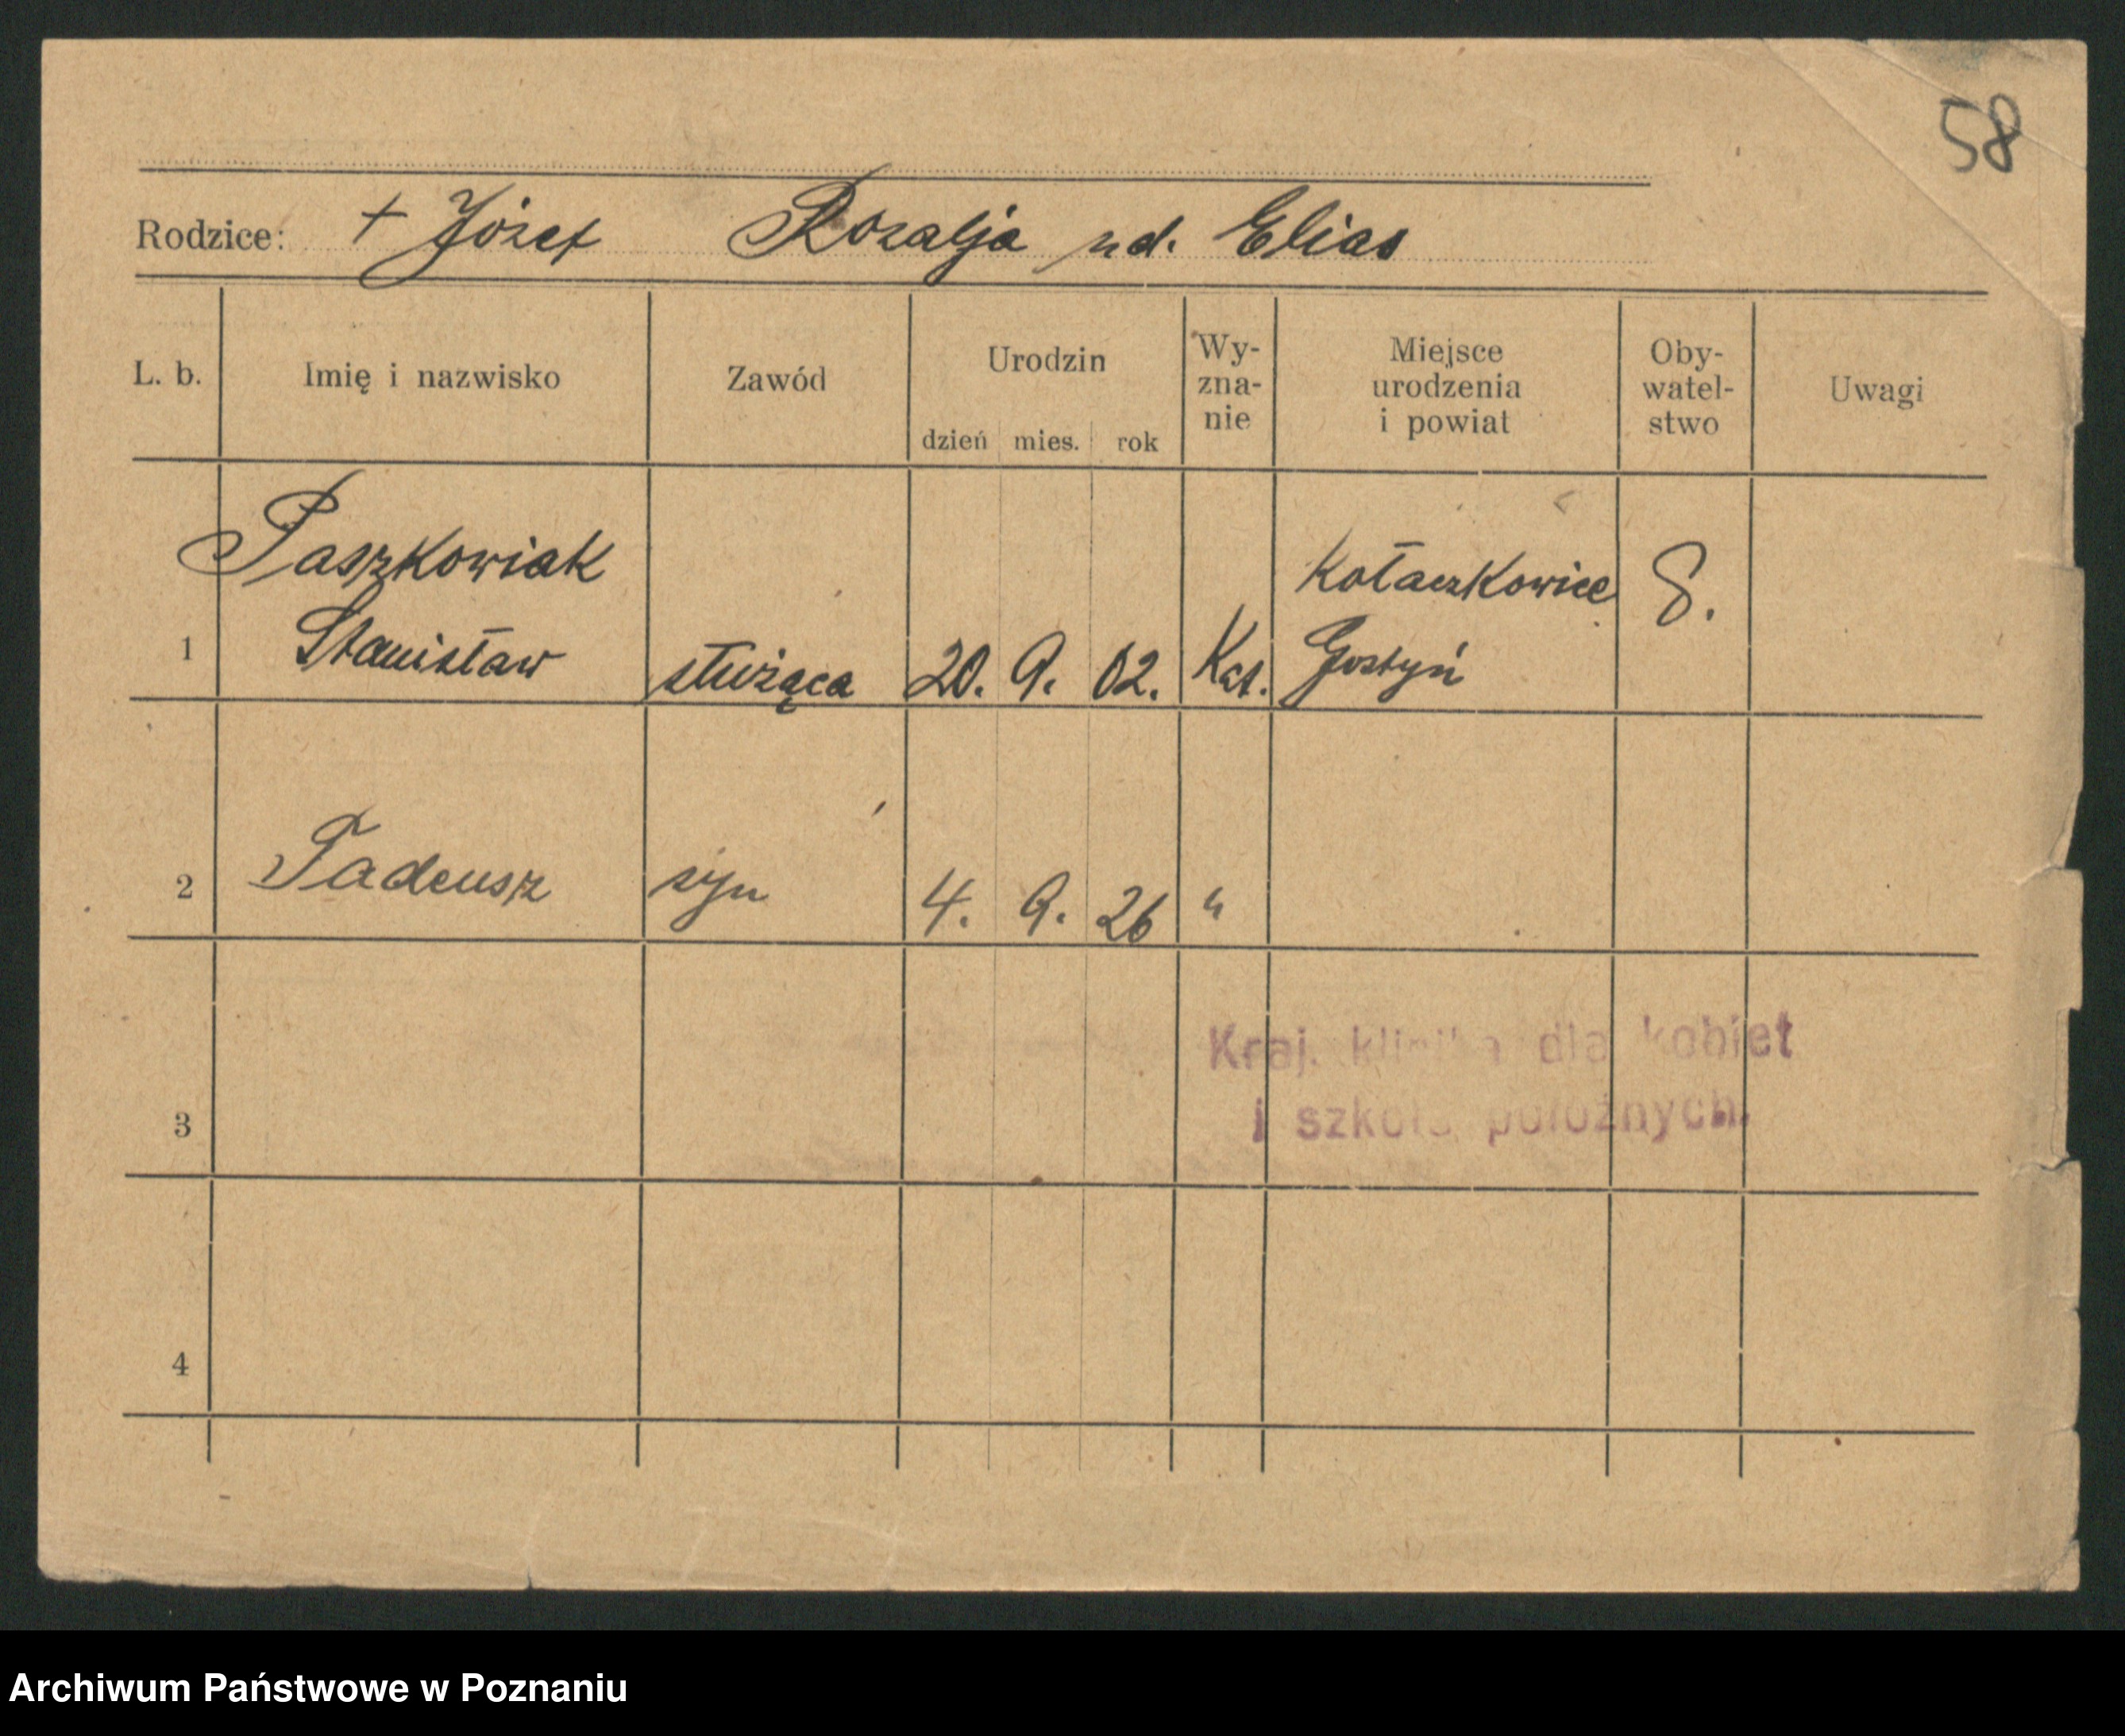 58
Rodzice: + Józef Rozalja ud. Elias
L. b. Imię i nazwisko Zawód Urodzin dzień mies. rok Wy-zna-nie Miejsce urodzenia i powiat Oby-watel-stwo Uwagi
Paszkowiak Kołaczkowice
1 Stanisław służąca 20. 9. 02. Kat. Gostyń
2 Tadeusz syn 4. 9. 26 "
Kraj. klinika dla kobiet
3 i szkoła położnych.
4
Archiwum Państwowe w Poznaniu